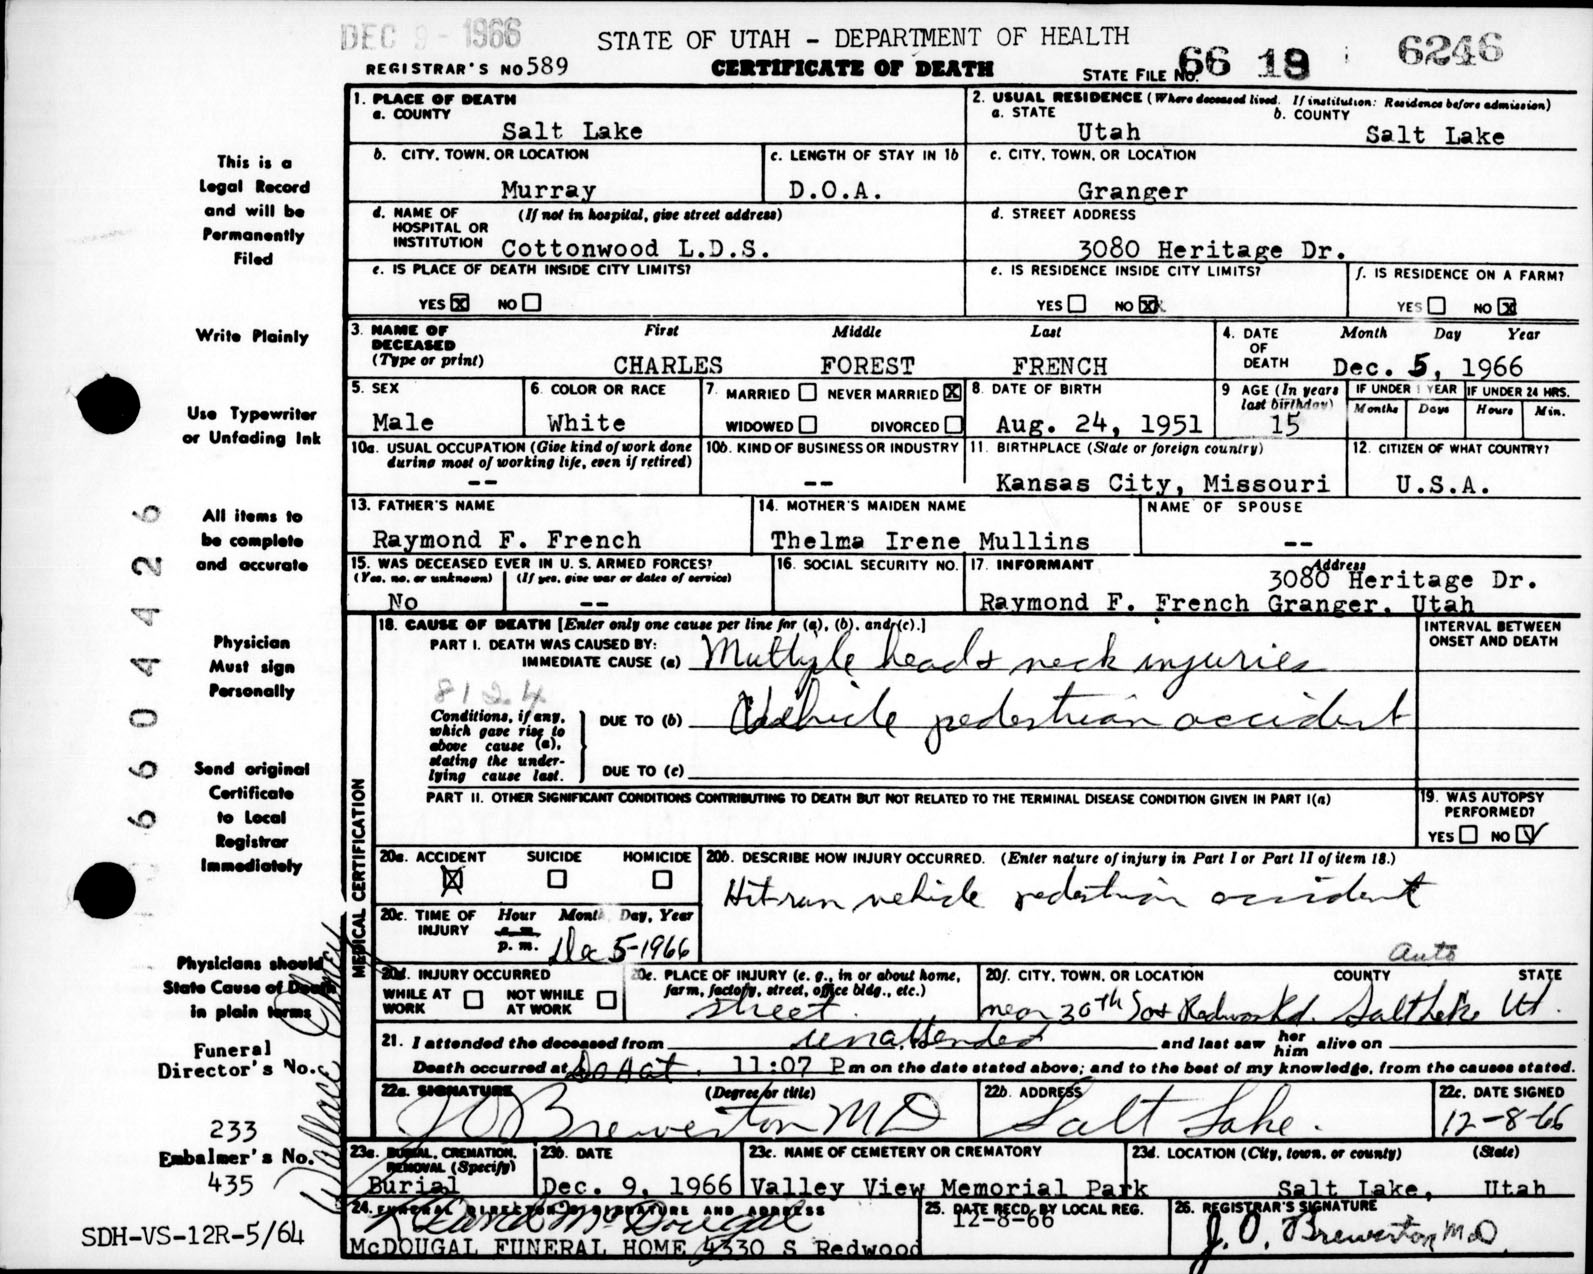 DEC 9 - 1966
STATE OF UTAH - DEPARTMENT OF HEALTH
REGISTRAR'S NO 589
CERTIFICATE OF DEATH
STATE FILE NO. 66 18 6246
1. PLACE OF DEATH
a. COUNTY
Salt Lake
2. USUAL RESIDENCE (Where deceased lived. If institution: Residence before admission)
a. STATE
Utah
b. COUNTY
Salt Lake
b. CITY, TOWN, OR LOCATION
Murray
c. LENGTH OF STAY IN 1b
D.O.A.
c. CITY, TOWN, OR LOCATION
Granger
d. NAME OF HOSPITAL OR INSTITUTION
(If not in hospital, give street address)
Cottonwood L.D.S.
d. STREET ADDRESS
3080 Heritage Dr.
e. IS PLACE OF DEATH INSIDE CITY LIMITS?
YES X NO
e. IS RESIDENCE INSIDE CITY LIMITS?
YES NO X
f. IS RESIDENCE ON A FARM?
YES NO X
3. NAME OF DECEASED (Type or print)
First Middle Last
CHARLES FOREST FRENCH
4. DATE OF DEATH
Month Day Year
Dec. 5, 1966
5. SEX
Male
6. COLOR OR RACE
White
7. MARRIED NEVER MARRIED X
WIDOWED DIVORCED
8. DATE OF BIRTH
Aug. 24, 1951
9 AGE (In years last birthday)
15
IF UNDER 1 YEAR
Months Days
IF UNDER 24 HRS.
Hours Min.
10a. USUAL OCCUPATION (Give kind of work done during most of working life, even if retired)
--
10b. KIND OF BUSINESS OR INDUSTRY
--
11. BIRTHPLACE (State or foreign country)
Kansas City, Missouri
12. CITIZEN OF WHAT COUNTRY?
U.S.A.
13. FATHER'S NAME
Raymond F. French
14. MOTHER'S MAIDEN NAME
Thelma Irene Mullins
NAME OF SPOUSE
--
15. WAS DECEASED EVER IN U. S. ARMED FORCES?
(Yes, no, or unknown) (If yes, give war or dates of service)
No --
16. SOCIAL SECURITY NO.
17. INFORMANT Address
3080 Heritage Dr.
Raymond F. French Granger, Utah
MEDICAL CERTIFICATION
18. CAUSE OF DEATH [Enter only one cause per line for (a), (b), and (c).]
INTERVAL BETWEEN ONSET AND DEATH
PART I. DEATH WAS CAUSED BY:
IMMEDIATE CAUSE (a) Multiple head & neck injuries
8124
Conditions, if any, which gave rise to above cause (a), stating the underlying cause last.
DUE TO (b) Vehicle pedestrian accident
DUE TO (c)
PART II. OTHER SIGNIFICANT CONDITIONS CONTRIBUTING TO DEATH BUT NOT RELATED TO THE TERMINAL DISEASE CONDITION GIVEN IN PART I(a)
19. WAS AUTOPSY PERFORMED?
YES NO ✓
20a. ACCIDENT SUICIDE HOMICIDE
X
20b. DESCRIBE HOW INJURY OCCURRED. (Enter nature of injury in Part I or Part II of item 18.)
Hit run vehicle pedestrian accident
Auto
20c. TIME OF INJURY
Hour Month, Day, Year
a. m.
p. m. Dec 5-1966
20d. INJURY OCCURRED
WHILE AT WORK NOT WHILE AT WORK
20e. PLACE OF INJURY (e. g., in or about home, farm, factory, street, office bldg., etc.)
street
20f. CITY, TOWN, OR LOCATION COUNTY STATE
near 30th So & Redwood Rd. Salt Lake Ut.
21. I attended the deceased from unattended and last saw her him alive on
Death occurred at DOA at. 11:07 P m on the date stated above; and to the best of my knowledge, from the causes stated.
22a. SIGNATURE (Degree or title)
J O Brewerton MD
22b. ADDRESS
Salt Lake.
22c. DATE SIGNED
12-8-66
23a. BURIAL, CREMATION, REMOVAL (Specify)
Burial
23b. DATE
Dec. 9, 1966
23c. NAME OF CEMETERY OR CREMATORY
Valley View Memorial Park
23d. LOCATION (City, town, or county) (State)
Salt Lake, Utah
24. FUNERAL DIRECTOR'S SIGNATURE AND ADDRESS
McDougal
McDOUGAL FUNERAL HOME 4330 S Redwood
25. DATE RECD. BY LOCAL REG.
12-8-66
26. REGISTRAR'S SIGNATURE
J. O. Brewerton MD.
This is a
Legal Record
and will be
Permanently
Filed
Write Plainly
Use Typewriter
or Unfading Ink
All items to
be complete
and accurate
Physician
Must sign
Personally
Send original
Certificate
to Local
Registrar
Immediately
Physicians should
State Cause of Death
in plain terms
Funeral
Director's No.
233
Embalmer's No.
435
Wallace
6604426
SDH-VS-12R-5/64